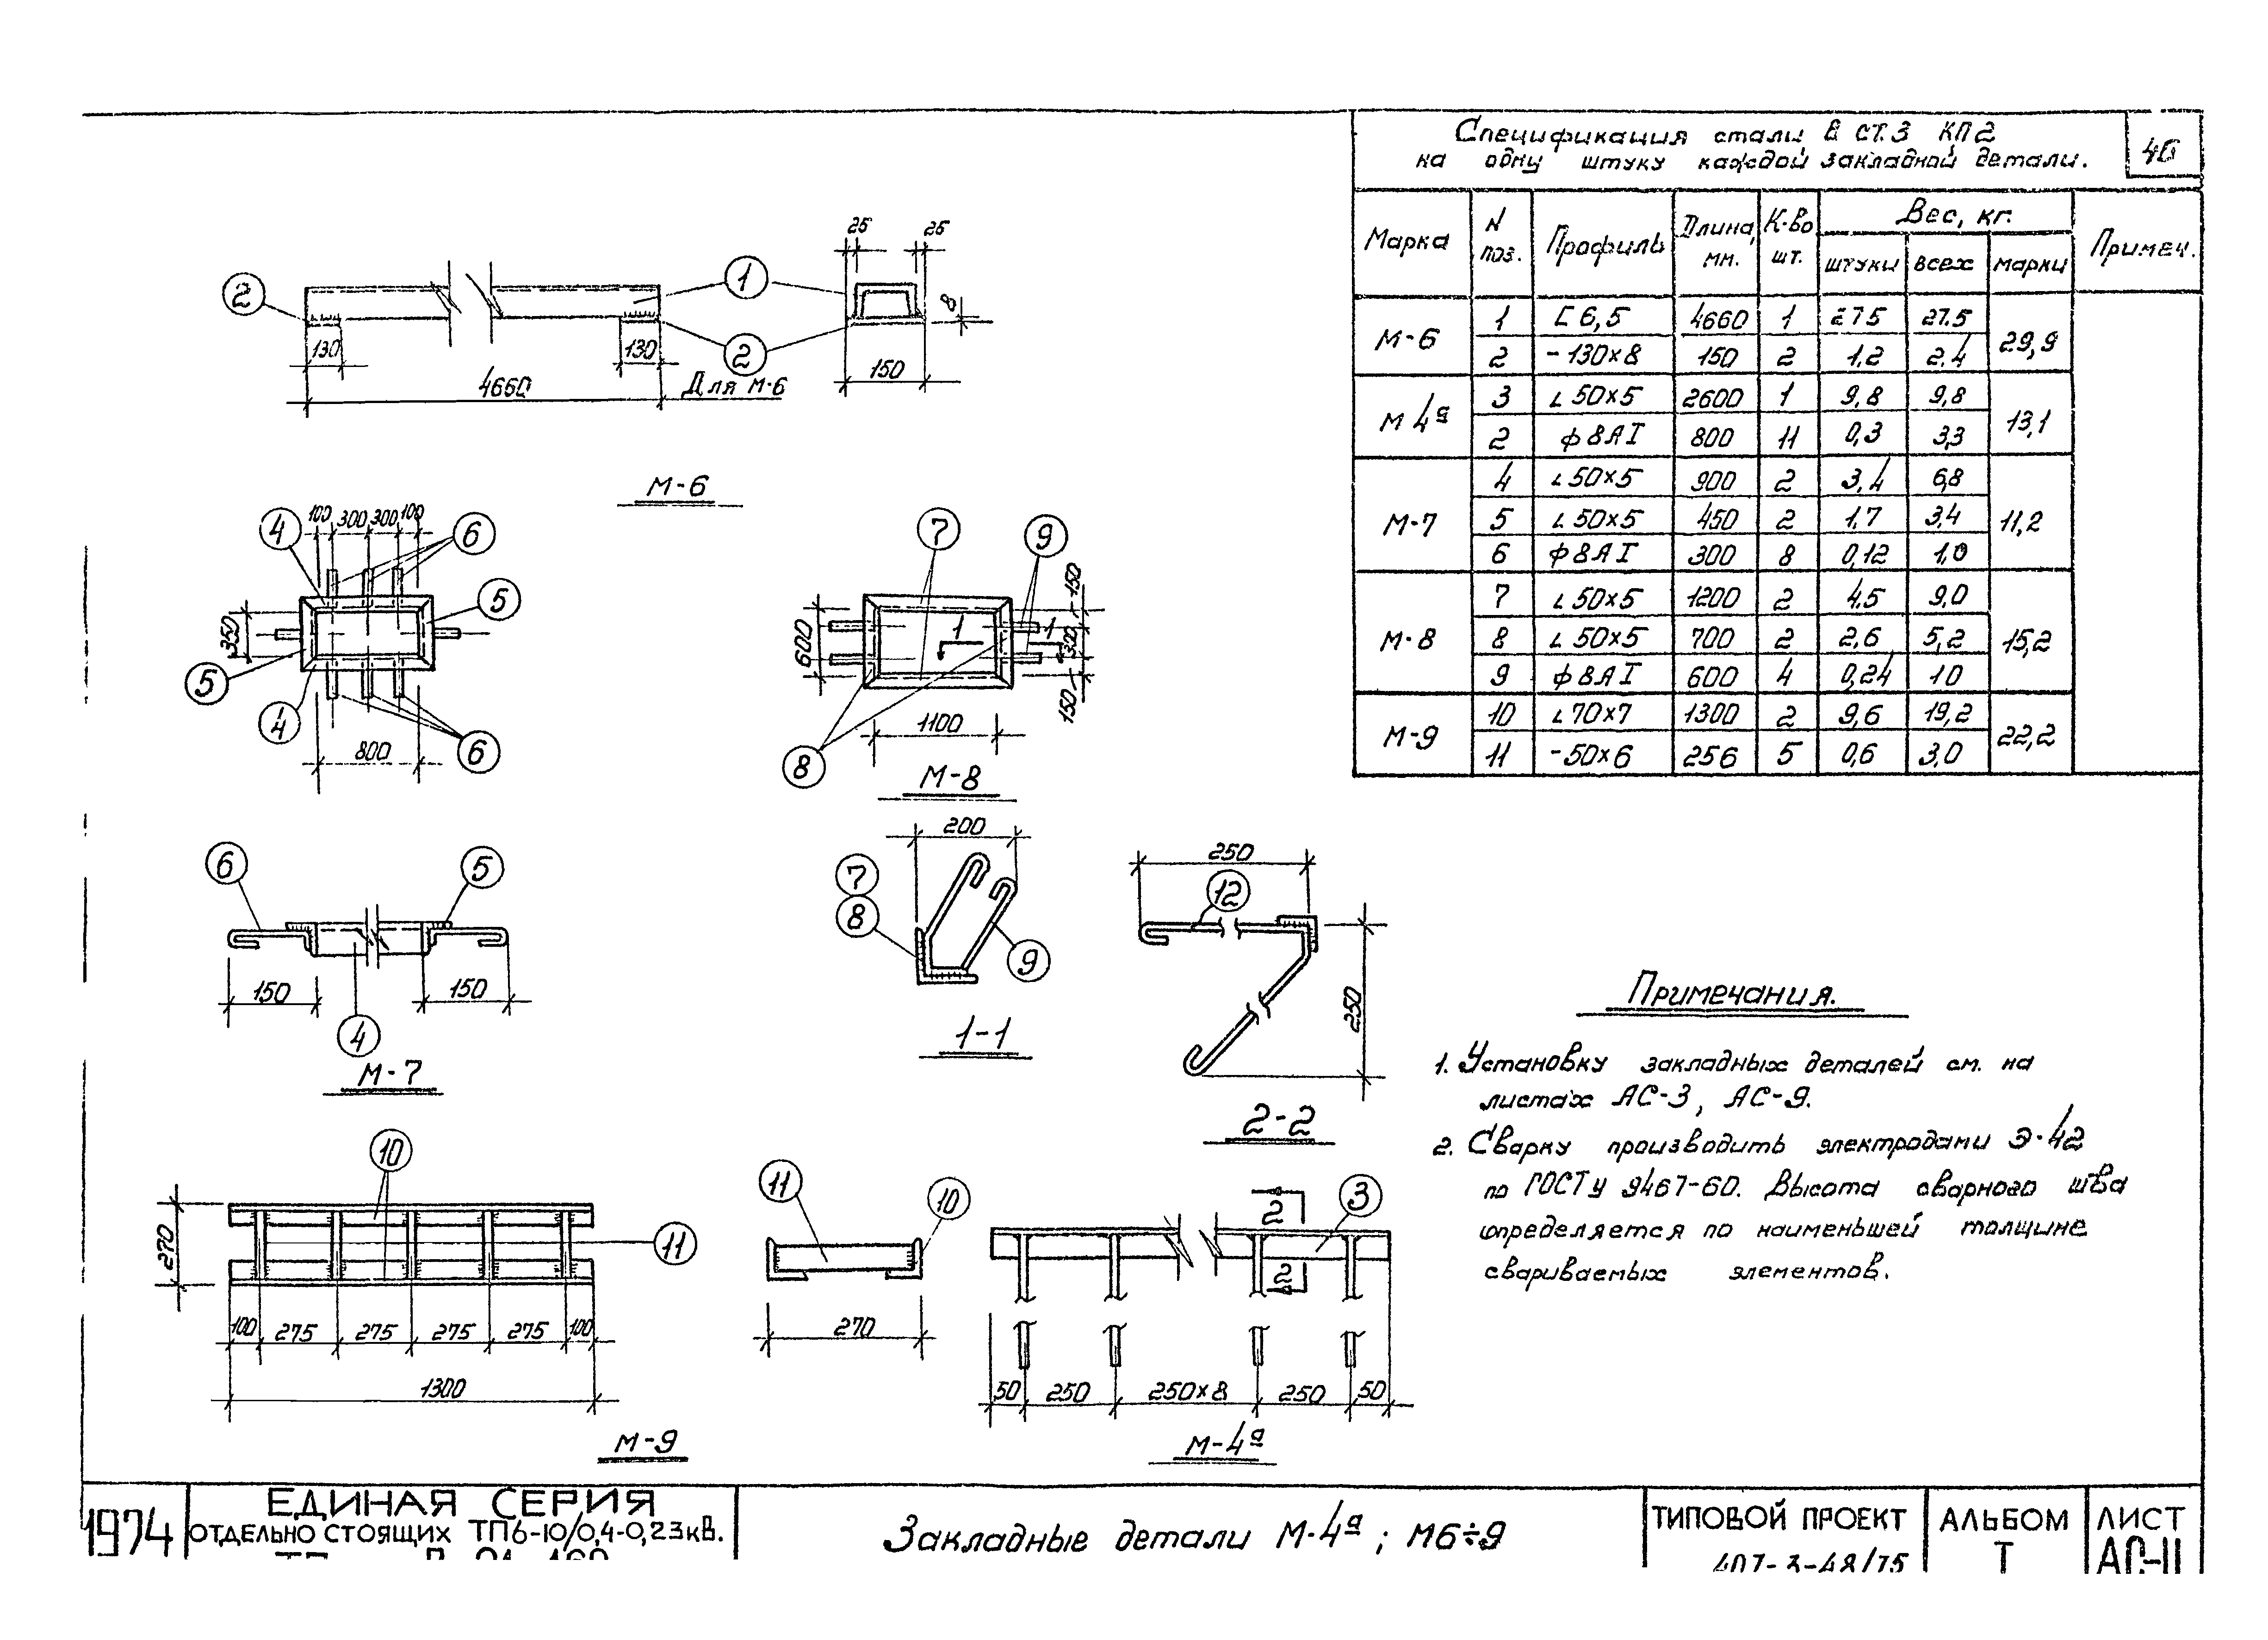 Спецификация стали В СТ.3 КП2
на одну штуку каждой закладной детали.
46
Марка N поз. Профиль Длина, мм. К-во шт. Вес, кг. Примеч.
штуки всех марки
М-6 1 [ 6,5 4660 1 27.5 27.5 29,9
2 -130×8 150 2 1,2 2,4
М 4ª 3 L 50×5 2600 1 9,8 9,8 13,1
2 ф 8АI 800 11 0,3 3,3
М-7 4 L 50×5 900 2 3,4 6,8 11,2
5 L 50×5 450 2 1,7 3,4
6 ф8АI 300 8 0,12 1,0
М-8 7 L 50×5 1200 2 4.5 9,0 15,2
8 L 50×5 700 2 2,6 5,2
9 ф 8АI 600 4 0,24 10
М-9 10 L 70×7 1300 2 9,6 19,2 22,2
11 -50×6 256 5 0,6 3,0
25 25
2 1 8
130 130 2
4660 Для М-6 150
М-6
100 300 300 100
4 6 7 9
5 150
350 600 1 1 300
5 150
4 6 1100
800 8
М-8
200
6 5 7 8 250
12
9
150 150 250
4
М-7
1-1
2-2
Примечания.
1. Установку закладных деталей см. на
листах АС-3, АС-9.
2. Сварку производить электродами Э-42
по ГОСТу 9467-60. Высота сварного шва
определяется по наименьшей толщине
свариваемых элементов.
10 11 10 2 3
270 11 2
100 275 275 275 275 100 270
1300 50 250 250×8 250 50
М-9 М-4ª
1974
ЕДИНАЯ СЕРИЯ
ОТДЕЛЬНО СТОЯЩИХ ТП6-10/0,4-0,23кВ.
Закладные детали М-4ª ; М6÷9
ТИПОВОЙ ПРОЕКТ
407-3-48/75
АЛЬБОМ
I
ЛИСТ
АС-11